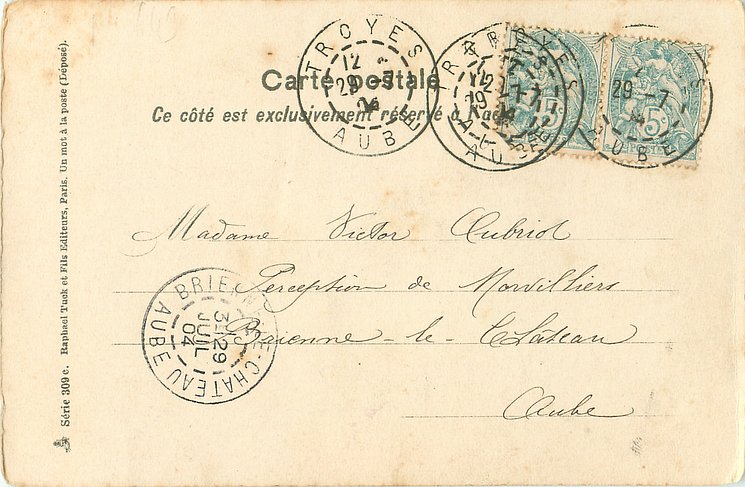 Carte postale
Ce côté est exclusivement réservé à l'adresse
TROYES
12
29 - 7
04
AUBE
TROYES
AUBE
29 - 7
AUBE
5c
Madame Victor Aubriot
Perception de Morvilliers
Brienne-le-Château
Aube
BRIENNE-LE-CHATEAU
3E
29
JUIL
04
AUBE
Série 309 c. Raphael Tuck et Fils Editeurs, Paris. Un mot à la poste (Déposé).